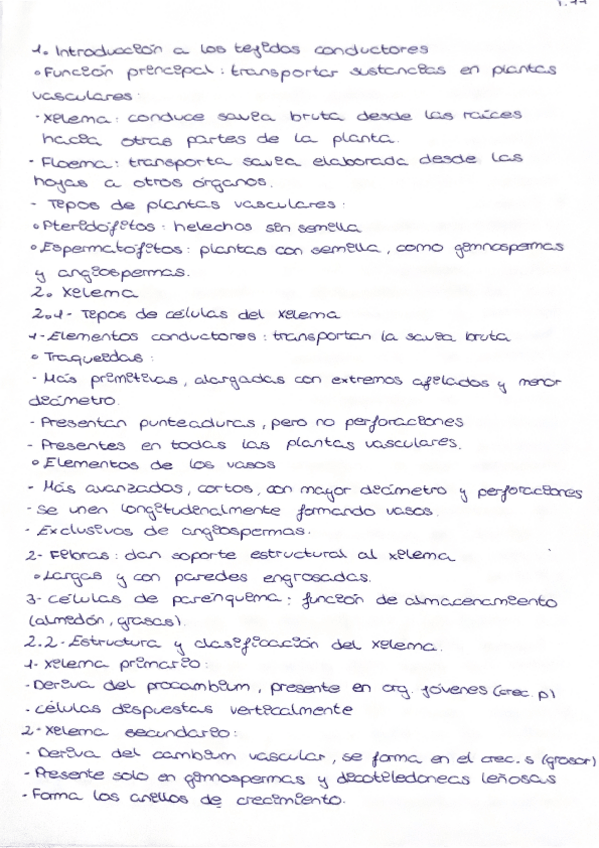 T.11
1. Introducción a los tejidos conductores
◦ Función principal: transportar sustancias en plantas
vasculares.
· Xilema: conduce savia bruta desde las raíces
hacia otras partes de la planta.
· Floema: transporta savia elaborada desde las
hojas a otros órganos.
- Tipos de plantas vasculares:
◦ Pteridófitos: helechos sin semilla
◦ Espermatófitos: plantas con semilla, como gimnospermas
y angiospermas.
2. Xilema
2.1- Tipos de células del xilema
1- Elementos conductores: transportan la savia bruta
◦ Traqueidas:
- Más primitivas, alargadas con extremos afilados y menor
diámetro.
- Presentan punteaduras, pero no perforaciones
- Presentes en todas las plantas vasculares.
◦ Elementos de los vasos
- Más avanzados, cortos, con mayor diámetro y perforaciones
- Se unen longitudinalmente formando vasos.
- Exclusivos de angiospermas.
2- Fibras: dan soporte estructural al xilema
◦ Largas y con paredes engrosadas.
3- células de parénquima: función de almacenamiento
(almidón, grasas).
2.2- Estructura y clasificación del xilema.
1- Xilema primario:
- Deriva del procambium, presente en org. jóvenes (crec. p)
- células dispuestas verticalmente
2- Xilema secundario:
- Deriva del cambium vascular, se forma en el crec. s (grosor)
- Presente solo en gimnospermas y dicotiledoneas leñosas
- Forma los anillos de crecimiento.